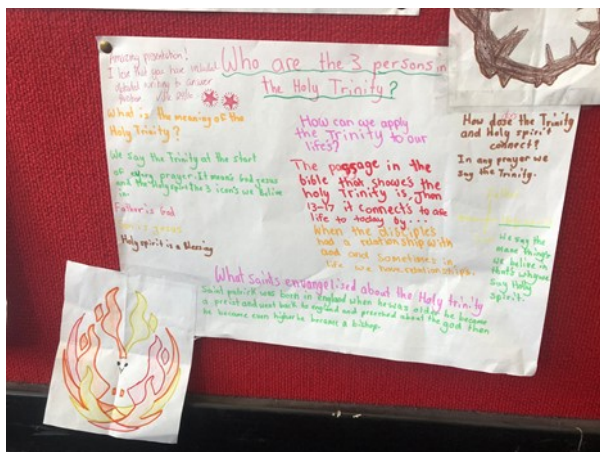 Amazing presentation!
I love that you have included
detailed writing to answer
Who are the 3 persons in
the Holy Trinity?
What is the meaning of the
Holy Trinity?
We say the Trinity at the start
of prayer. It means God jesus
and the Holy spirit the 3 icon's we Believe
in.
Father is God
jesus
Holy spirit is a Blessing
How can we apply
the Trinity to our
life's?
The passage in the
bible that showe's the
holy Trinity is, Jhon
13-17 it connect's to
life to today by...
When the disciples
had a relationship with
god and sometimes in
life we have relationships.
How dose the Trinity
and Holy spirit
connect?
In any prayer we
say the Trinity.
We say the
thing's
we belive in
that's why we
say Holy
spirit.
What saints envangelised about the Holy trinity
Saint patrick was born in england when he was older he became
a preist and went back to england and preached about the god then
he became even higher he became a bishop.